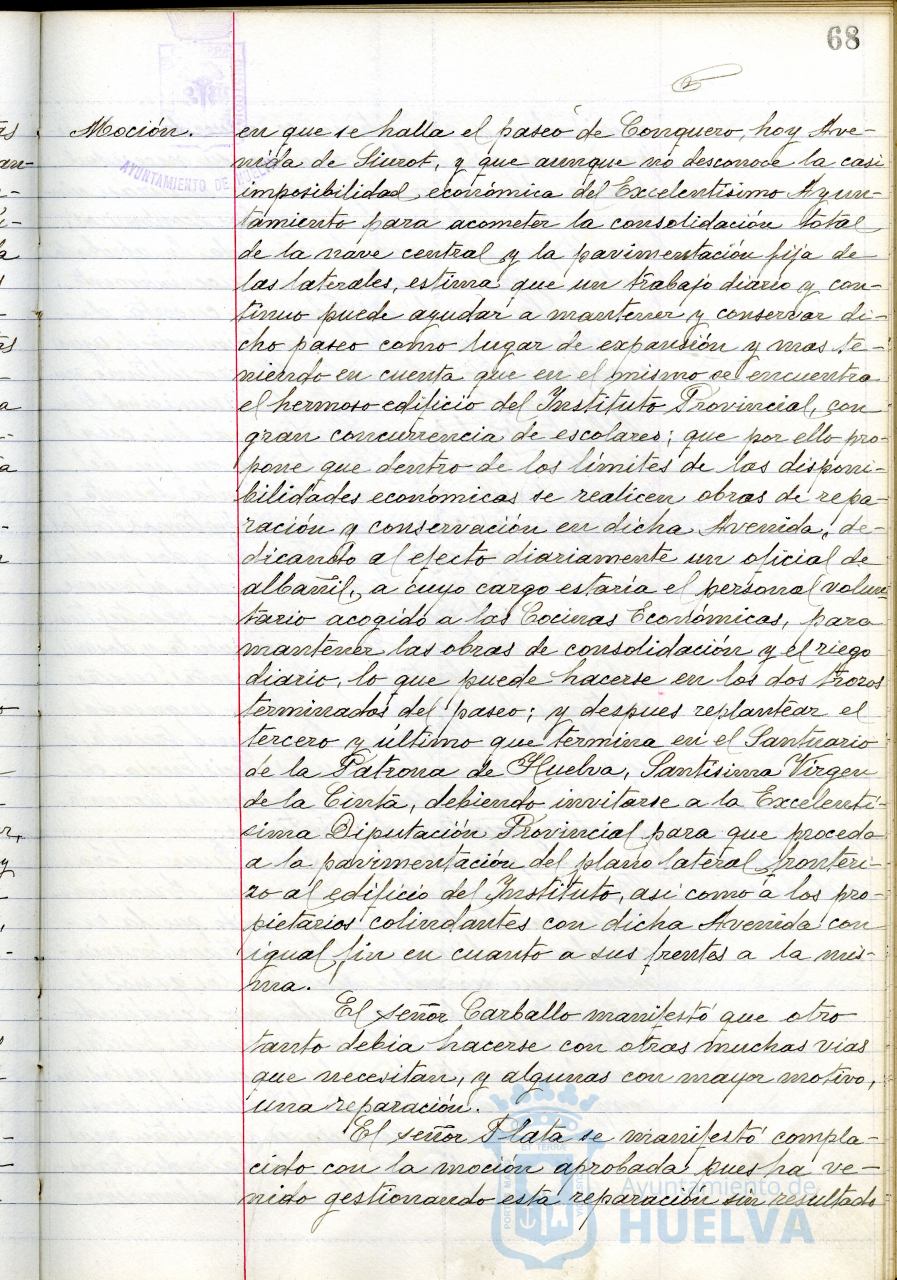 68
Moción.
AYUNTAMIENTO DE HUELVA
en que se halla el paseo de Conquero, hoy Ave-
nida de Siurot, y que aunque no desconoce la casi
imposibilidad económica del Excelentísimo Ayun-
tamiento para acometer la consolidación total
de la nave central y la pavimentación fija de
las laterales, estima que un trabajo diario y con-
tinuo puede ayudar a mantener y conservar di-
cho paseo como lugar de expansión y mas te-
niendo en cuenta que en el mismo se encuentra
el hermoso edificio del Instituto Provincial, con
gran concurrencia de escolares; que por ello pro-
pone que dentro de los límites de las disponi-
bilidades económicas se realicen obras de repa-
ración y conservación en dicha Avenida, de-
dicando al efecto diariamente un oficial de
albañil, a cuyo cargo estaría el personal volun-
tario acogido a las Cocinas Económicas, para
mantener las obras de consolidación y el riego
diario, lo que puede hacerse en los dos trozos
terminados del paseo; y despues replantear el
tercero y último que termina en el Santuario
de la Patrona de Huelva, Santísima Virgen
de la Cinta, debiendo invitarse a la Excelentí-
sima Diputación Provincial para que proceda
a la pavimentación del plano lateral fronteri-
zo al edificio del Instituto, asi como a los pro-
pietarios colindantes con dicha Avenida con
igual fin en cuanto a sus frentes a la mis-
ma.
El señor Carballo manifestó que otro
tanto debia hacerse con otras muchas vias
que necesitan, y algunas con mayor motivo,
una reparación.
El señor Plata se manifestó compla-
cido con la moción aprobada pues ha ve-
nido gestionando esta reparación sin resultado
Ayuntamiento de
HUELVA